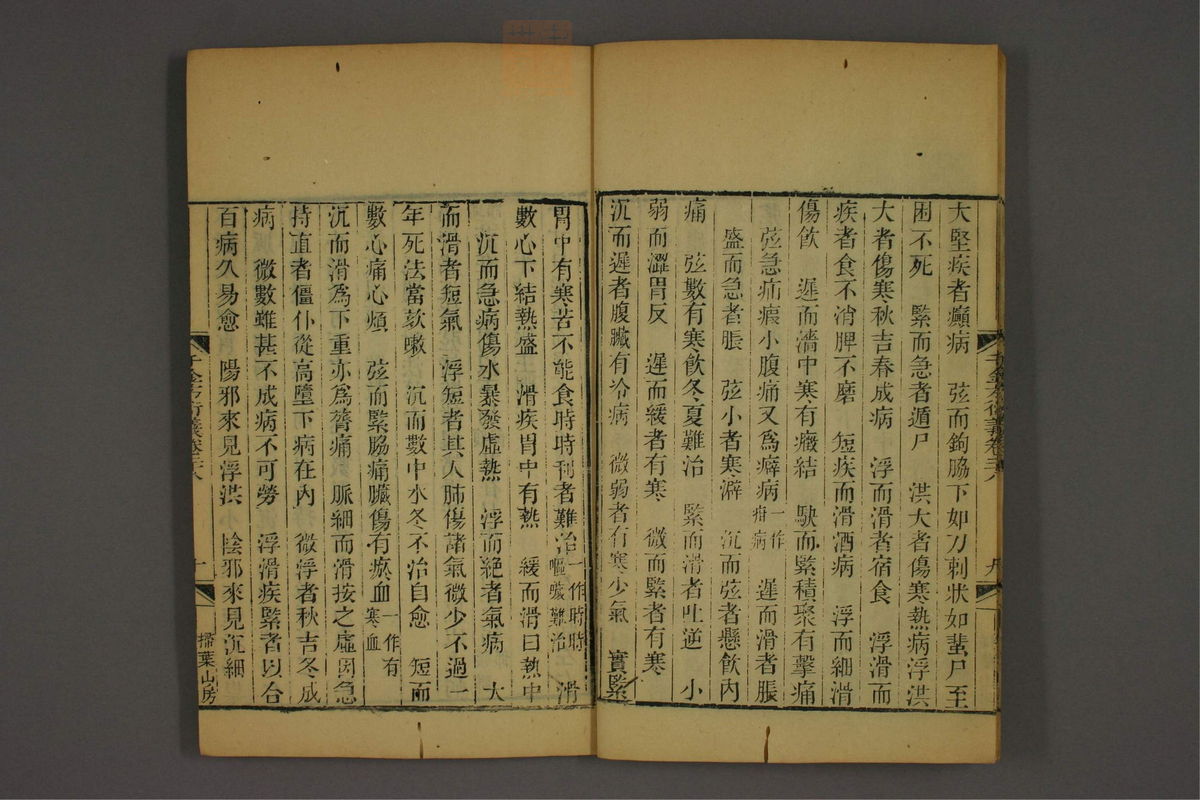 大堅疾者癲病　弦而鉤脇下如刀刺狀如蜚尸至
困不死　緊而急者遁尸　洪大者傷寒熱病浮洪
大者傷寒秋吉春成病　浮而滑者宿食　浮滑而
疾者食不消脾不磨　短疾而滑酒病　浮而細滑
傷飲　遲而濇中寒有癥結　駃而緊積聚有擊痛
弦急疝瘕小腹痛又爲癖病一作痺病　遲而滑者脹
盛而急者脹　弦小者寒澼　沉而弦者懸飲內
痛　弦數有寒飲冬夏難治　緊而滑者吐逆　小
弱而澀胃反　遲而緩者有寒　微而緊者有寒
沉而遲者腹臟有冷病　微弱者有寒少氣　實緊
千金方衍義卷二十八
九
胃中有寒苦不能食時時利者難治一作時時嘔㗒難治　滑
數心下結熱盛　滑疾胃中有熱　緩而滑曰熱中
沉而急病傷水暴發虛熱　浮而絕者氣病　大
而滑者短氣　浮短者其人肺傷諸氣微少不過一
年死法當欬嗽　沉而數中水冬不治自愈　短而
數心痛心煩　弦而緊脇痛臟傷有瘀血一作有寒血
沉而滑爲下重亦爲膂痛　脈細而滑按之虛因急
持直者僵仆從高墮下病在內　微浮者秋吉冬成
病　微數雖甚不成病不可勞　浮滑疾緊者以合
百病久易愈　陽邪來見浮洪　陰邪來見沉細
千金方衍義卷二十八
十
掃葉山房